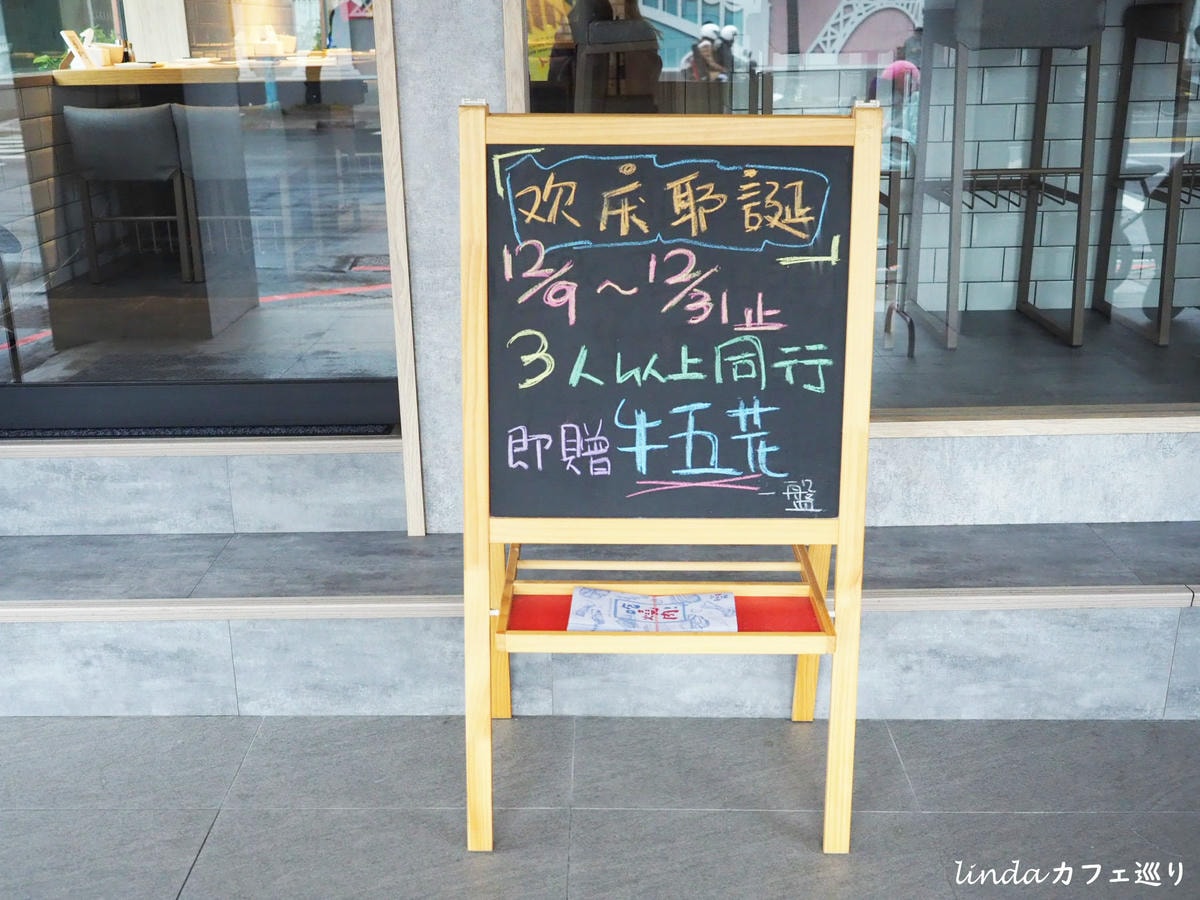 欢庆耶誕
12/9～12/31止
3人以上同行
即贈牛五花
一盤
lindaカフェ巡り